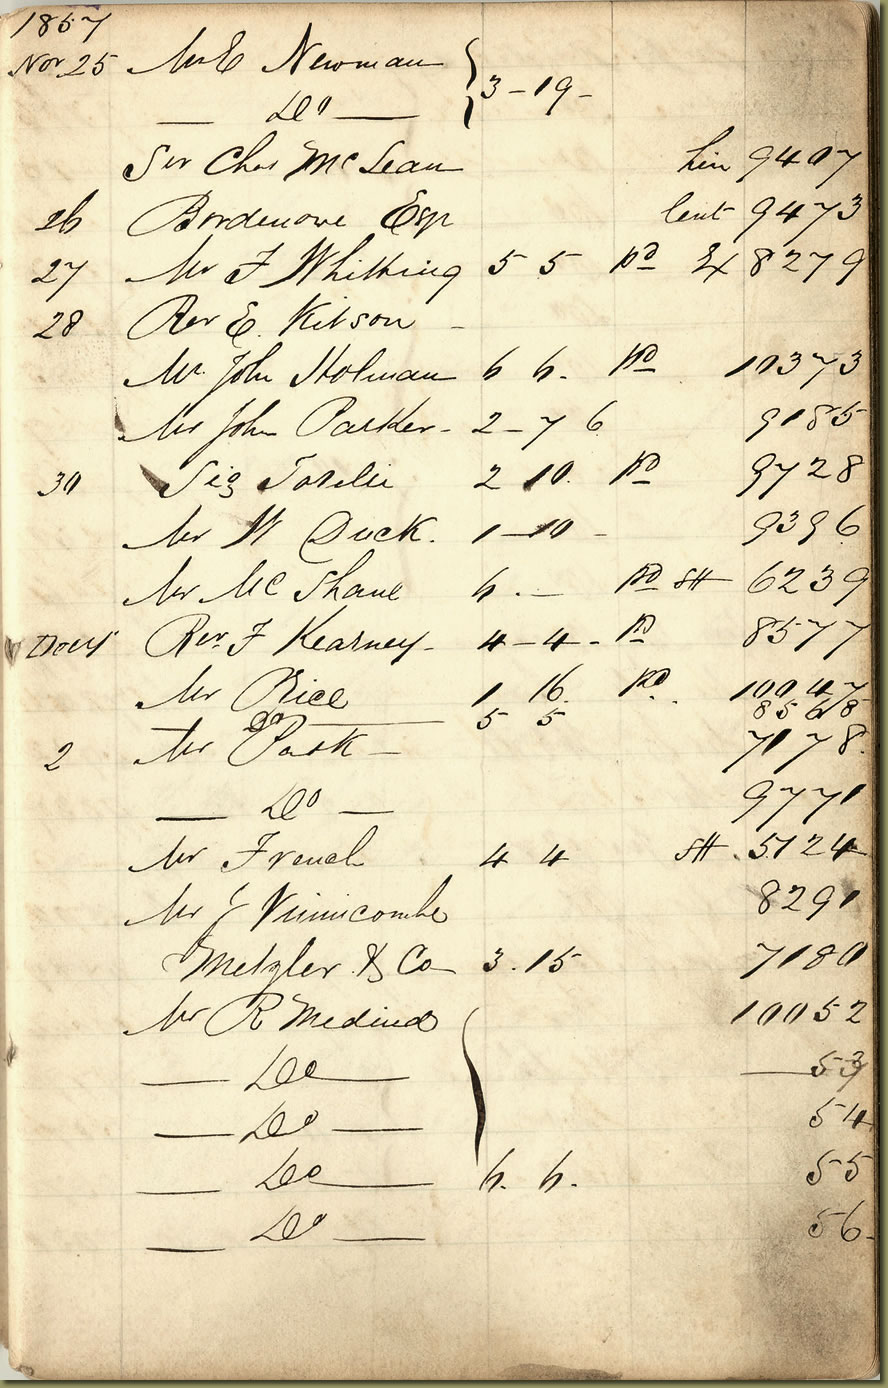 1857
Nov 25 Mr E Newman 3 - 19 -
— Do —
Sir Chas McLean hire 9407
26 Bordenove Esq lent 9473
27 Mr F Whiting 5 5 pd Ex 8279
28 Rev E. Kitson -
Mr John Holman 6 6 - pd 10373
Mr John Parker - 2 - 7 6 9185
30 Sig 2 10. pd 9728
Mr W Duck. 1 - 10 - 9396
Mr McShane 6. — pd SH 6239
Rev. F Kearney - 4 - 4 - pd 8577
Mr Rice 1 16 pd. 10047
do 5 5 8568
2 Mr Pask — 7178.
— Do — 9771
Mr French 4 4 SH 5124
Mr J Vinnicombe 8291
Metzler & Co 3. 15 7180
Mr R Medina 10052
— Do — — 53
— Do — 54
— Do — 6. 6. 55
— Do — 56 -